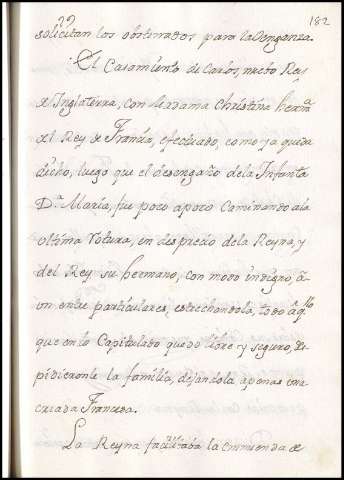 29 182
solicitan los obstinados para la Venganza.
El Casamiento de Carlos, nuebo Rey
de Inglaterra, con Madama Christina herm.ª
del Rey de Francia, efectuado, como ya queda
dicho, luego que el desengaño dela Infanta
D.ª Maria, fue poco apoco Caminando ala
ultima rotura, en desprecio dela Reyna, y
del Rey su hermano, con modo indigno, ā
un entre particulares, estrechandola, todo āq.llo
que enlo Capitulado quedo libre y seguro, Des
pidieronle la familia, dejandola apenas una
criada Francesa.
La Reyna facilitaba la enmienda de